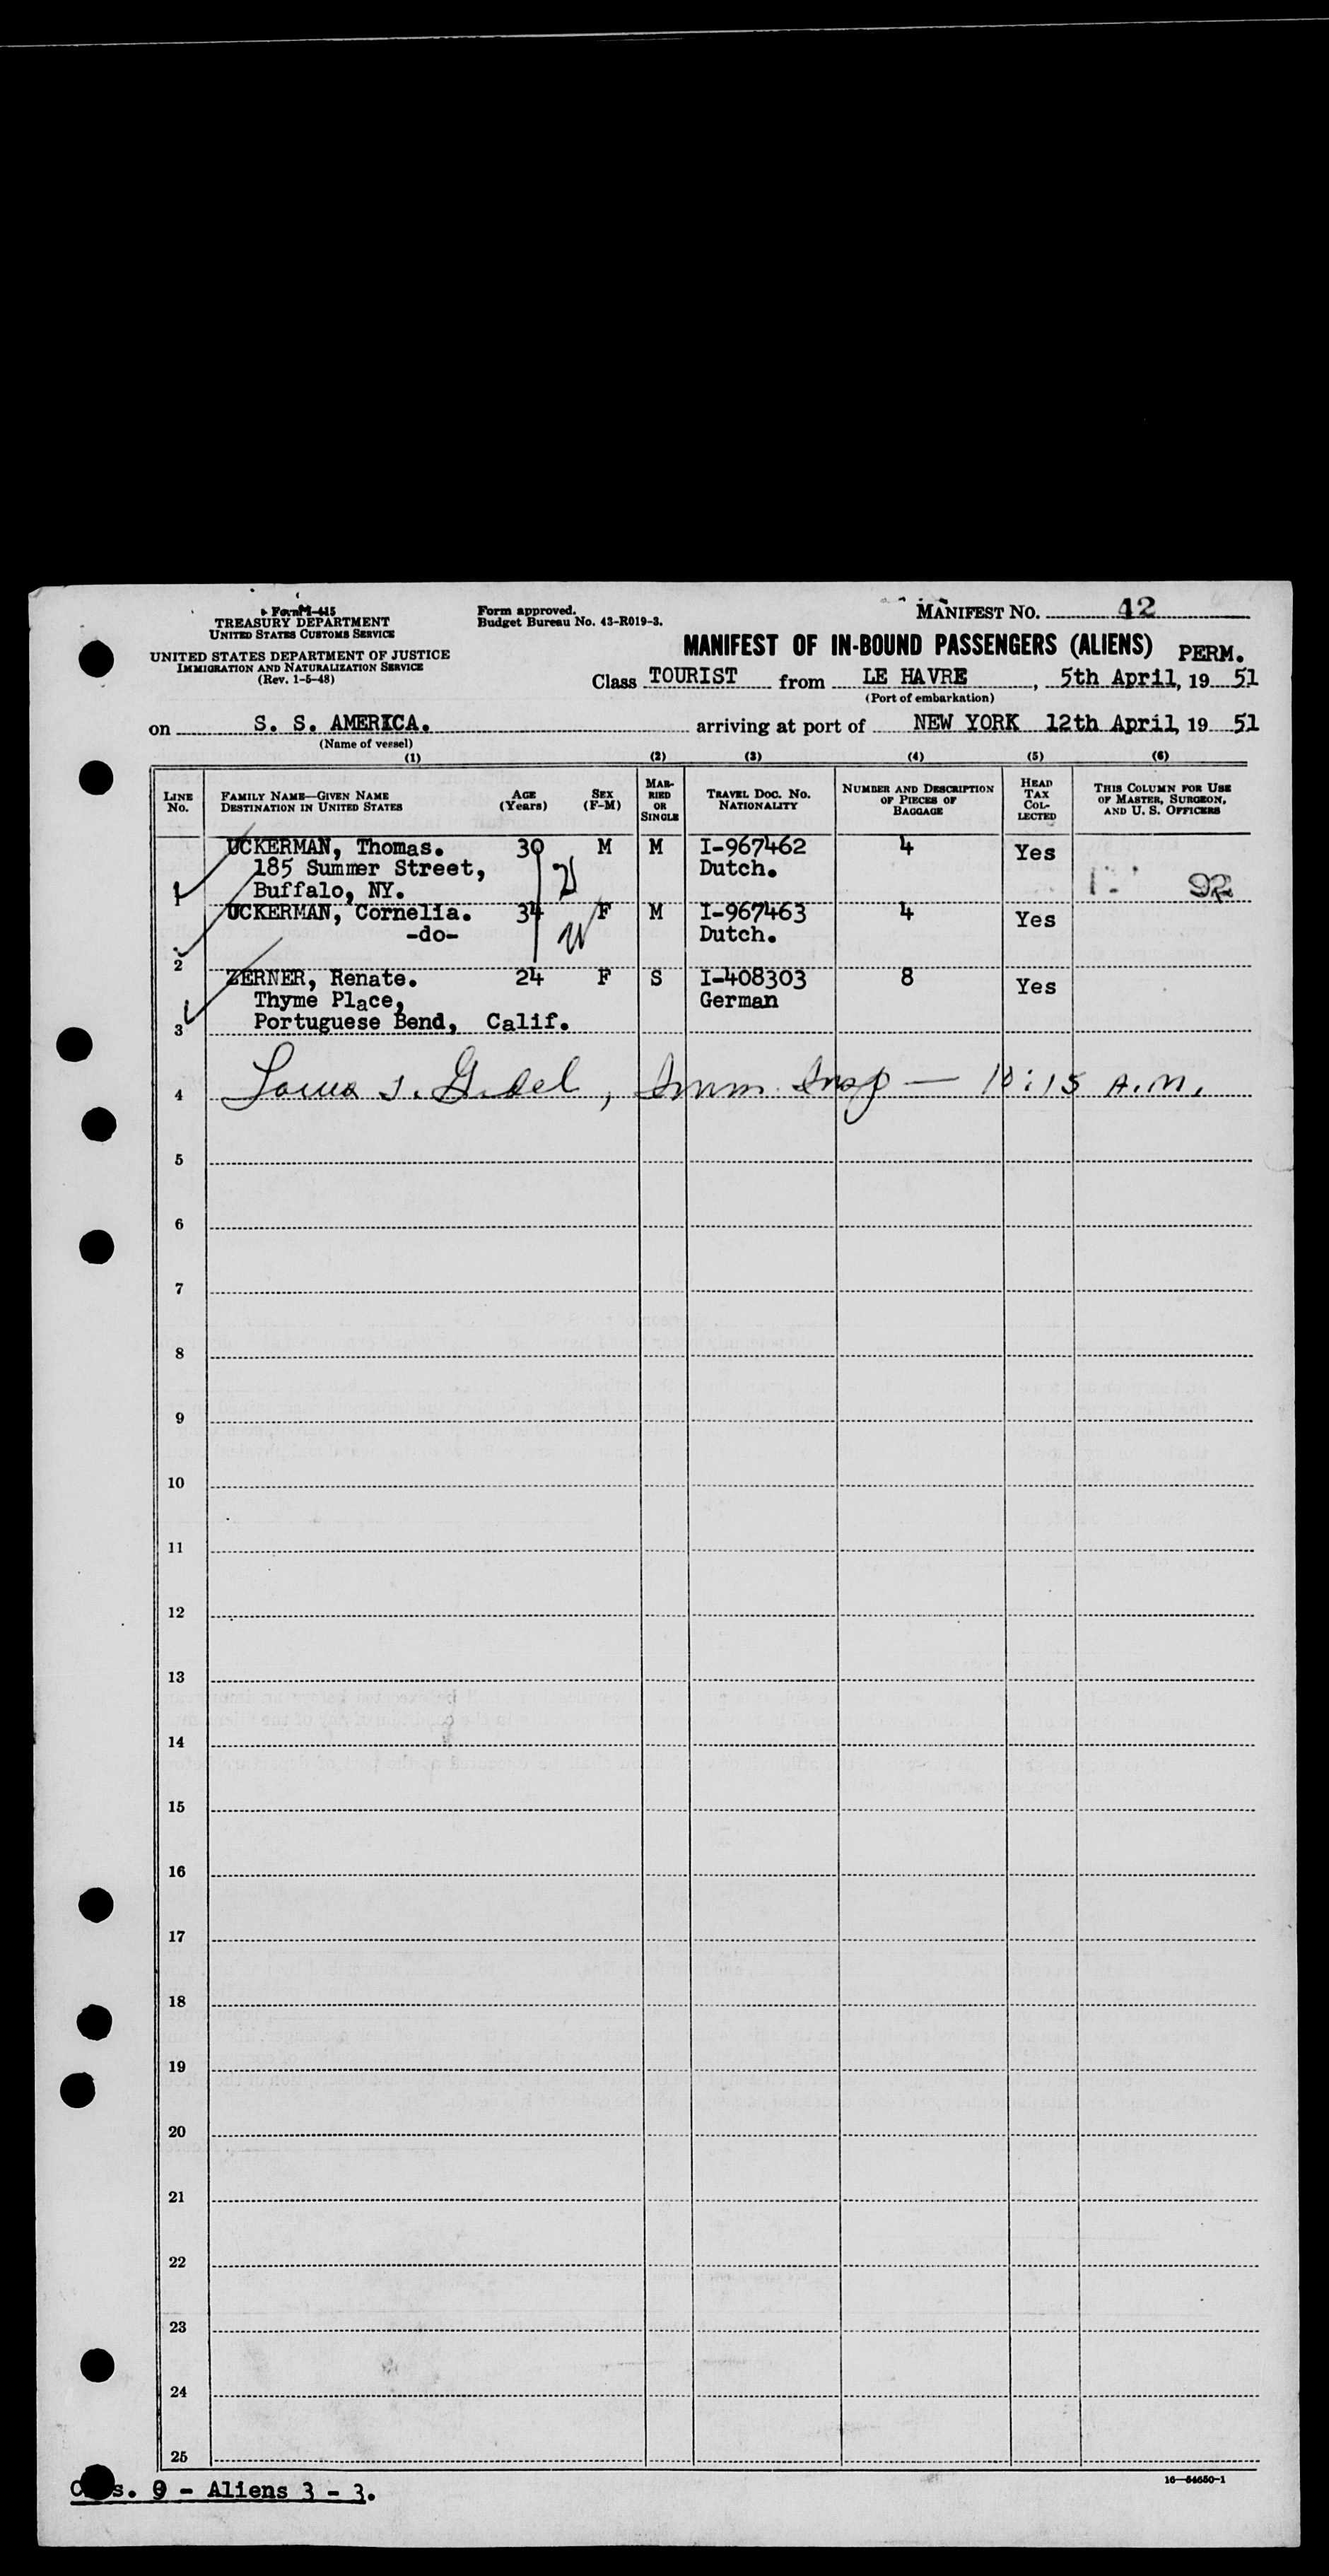 Form I-415
TREASURY DEPARTMENT
UNITED STATES CUSTOMS SERVICE
UNITED STATES DEPARTMENT OF JUSTICE
IMMIGRATION AND NATURALIZATION SERVICE
(Rev. 1-5-48)
Form approved.
Budget Bureau No. 43-R019-3.
MANIFEST NO. 42
MANIFEST OF IN-BOUND PASSENGERS (ALIENS) PERM.
Class TOURIST from LE HAVRE, 5th April, 19 51
(Port of embarkation)
on S. S. AMERICA. arriving at port of NEW YORK 12th April, 19 51
(Name of vessel)
(1) (2) (3) (4) (5) (6)
LINE No. FAMILY NAME—GIVEN NAME DESTINATION IN UNITED STATES AGE (Years) SEX (F-M) MARRIED OR SINGLE TRAVEL DOC. NO. NATIONALITY NUMBER AND DESCRIPTION OF PIECES OF BAGGAGE HEAD TAX COLLECTED THIS COLUMN FOR USE OF MASTER, SURGEON, AND U. S. OFFICERS
UCKERMAN, Thomas. 30 M M I-967462 4 Yes
185 Summer Street, Dutch.
1 Buffalo, NY. 92
UCKERMAN, Cornelia. 34 F M I-967463 4 Yes
-do- Dutch.
2
ZERNER, Renate. 24 F S I-408303 8 Yes
Thyme Place, German
3 Portuguese Bend, Calif.
4 Imm. Insp — 10:15 A.M.
5
6
7
8
9
10
11
12
13
14
15
16
17
18
19
20
21
22
23
24
25
16—54650-1
s. 0 - Aliens 3 - 3.